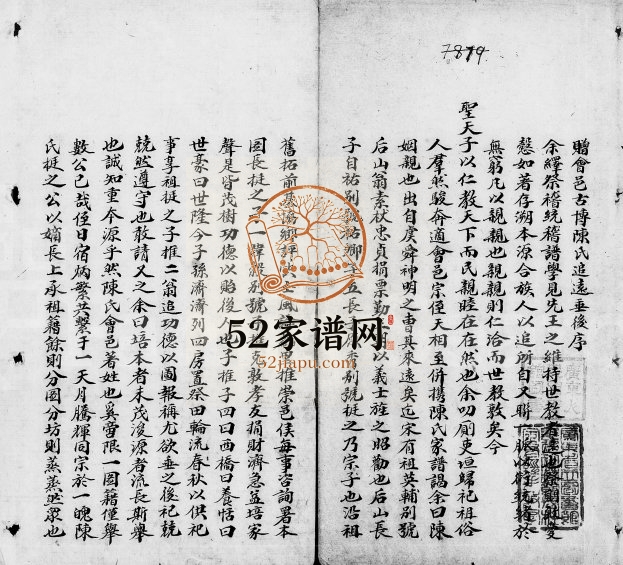 7819
贈會邑古博陳氏追遠垂後序
余繹祭禮統稽譜學見先王之維持世教
慤如著存溯本源合族人以追所自又聯
無窮凡以親親也親親則仁洽而世教敦矣今
聖天子以仁教天下而民親睦在在然也余叨
人羣然駿奔適會邑宗侄天相至併携陳氏家譜謁余曰陳
姻親也出自虞舜神明之冑具來遠矣迄宋有祖英輔別號
后山翁素秋忠貞捐票勤 以義士旌之昭勸也后山長
子自祐別號祐鄉 五長 別號挺之乃宗子也沿祖
舊拓前 鄉評 風 推崇邑侯每事咨詢署本
圖長挺之 一 別號 敦孝友捐財濟急益培家
聲是皆茂樹功德以貽後人 子推子四曰西橋曰養恬曰
世豪曰世隆今子孫濟濟列四房置祭田輪流春秋以供祀
事享祖挺之子推二翁追功德以圖報稱尤欲垂之後祀兢
兢然遵守也敢請又之余曰培本者末茂浚源者流長斯舉
也誠知重本源乎然陳氏會邑著姓也奚啻限一圖籍僅舉
數公已哉侄曰宿炳繁共繫于一天月騰輝同宗於一魄陳
氏挺之公以嫡長上承祖籍餘則分圖分坊則蒸蒸然眾也
52家谱网
52jiapu.com